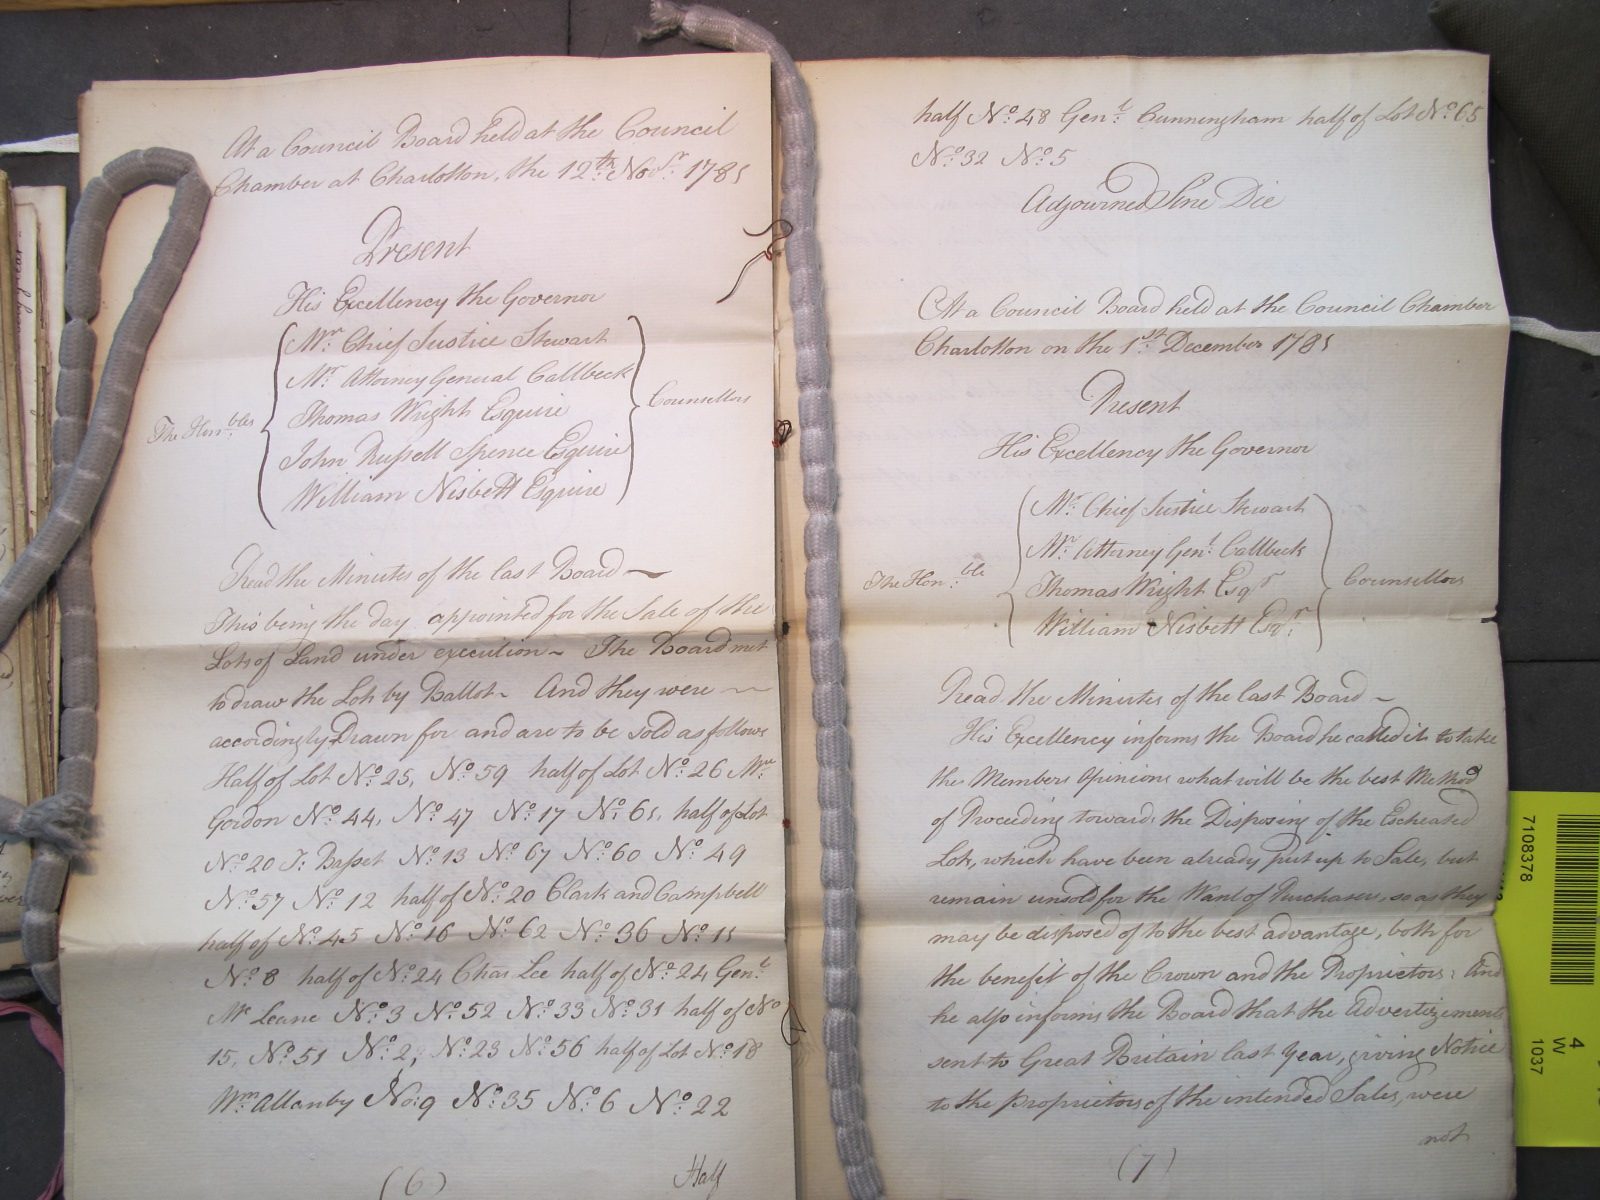 At a Council Board held at the Council
Chamber at Charlotton, the 12th. Novr. 1781
Present
His Excellency the Governor
Mr. Chief Justice Stewart
Mr. Attorney General Callbeck
The Honbles.
Thomas Wright Esquire
Counsellors
John Russell Spence Esquire
William Nisbett Esquire
Read the Minutes of the last Board ~
This being the day appointed for the Sale of the
Lots of Land under execution ~ The Board met
to draw the Lots by Ballot ~ And they were ~
accordingly Drawn for and are to be sold as follows
Half of Lot No. 25, No. 59 half of Lot No. 26 Mr.
Gordon No. 44, No. 47 No. 17 No. 61, half of Lot
No. 20 T: Basset No. 13 No. 67 No. 60 No. 49
No. 57 No. 12 half of No. 20 Clark and Campbell
half of No. 45 No. 16 No. 62 No. 36 No. 11
No. 8 half of No. 24 Chas Lee half of No. 24 Genl.
Mc Leane No. 3 No. 52 No. 33 No. 31 half of No
15, No. 51 No. 2, No. 23 No. 56 half of Lot No. 18
Wm. Allanby No. 9 No. 35 No. 6 No. 22
(6)
Half
half No. 48 Genl. Cunningham half of Lot No. 65
No. 32 No. 5
Adjourned Sine Die
At a Council Board held at the Council Chamber
Charlotton on the 1st. December 1781
Present
His Excellency the Governor
Mr. Chief Justice Stewart
Mr. Attorney Genl. Callbeck
The Honble.
Thomas Wright Esqr
Counsellors
William Nisbett Esqr.
Read the Minutes of the last Board ~
His Excellency informs the Board he called it to take
the Members Opinions what will be the best Method
of Proceeding towards the Disposing of the Escheated
Lots, which have been already put up to Sale, but
remain unsold for the Want of Purchasers, so as they
may be disposed of to the best advantage, both for
the benefit of the Crown and the Proprietors: And
he also informs the Board that the Advertizements
sent to Great Britain last Year, giving Notice
to the proprietors of the intended Sales, were
not
(7)
7108378
4
W
1037